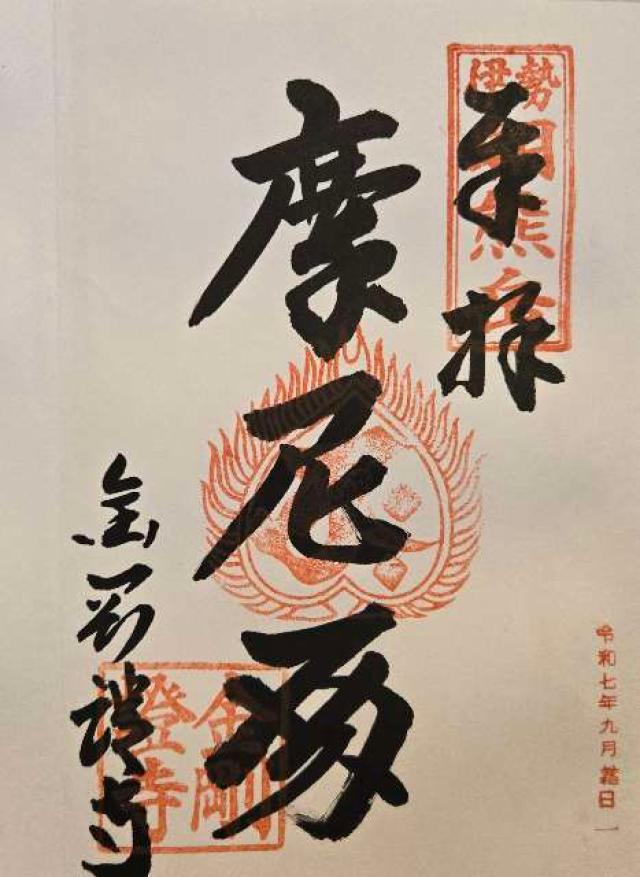 伊勢
朝熊岳
奉拝
摩尼殿
金剛證寺
金剛
證寺
令和七年九月 日